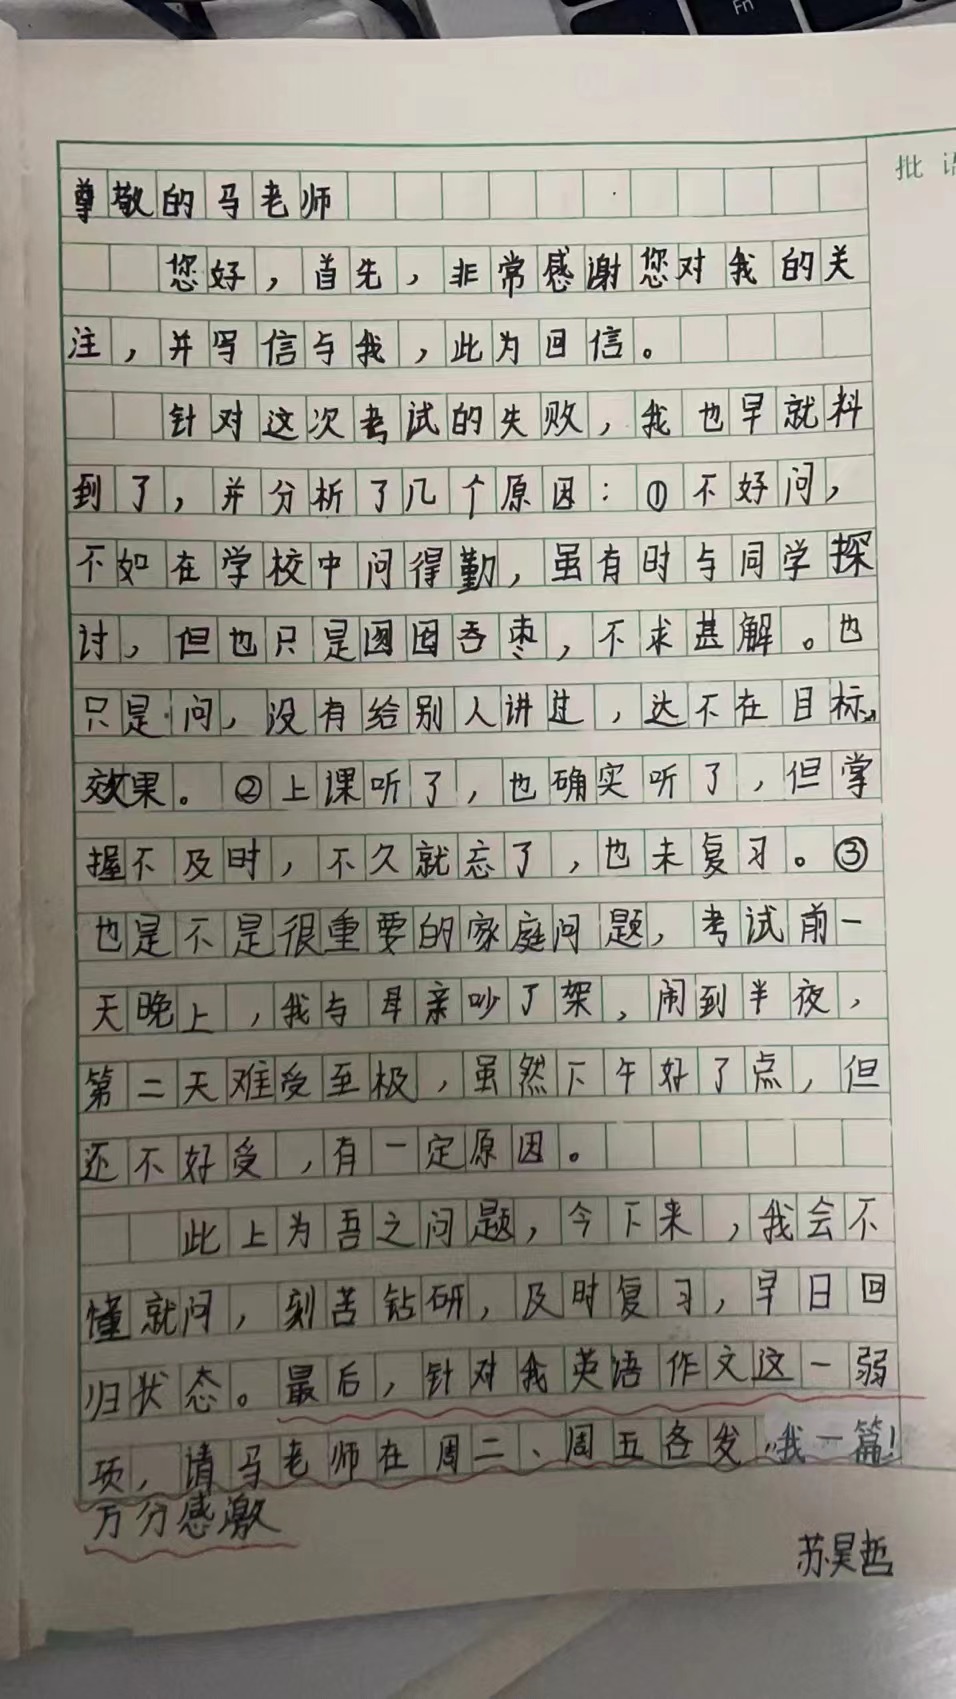 Fn
批
尊敬的马老师
您好，首先，非常感谢您对我的关
注，并写信与我，此为回信。
针对这次考试的失败，我也早就料
到了，并分析了几个原因：①不好问，
不如在学校中问得勤，虽有时与同学探
讨，但也只是囫囵吞枣，不求甚解。也
只是问，没有给别人讲过，达不在目标
效果。②上课听了，也确实听了，但掌
握不及时，不久就忘了，也未复习。③
也是不是很重要的家庭问题，考试前一
天晚上，我与母亲吵了架，闹到半夜，
第二天难受至极，虽然下午好了点，但
还不好受，有一定原因。
此上为吾之问题，今下来，我会不
懂就问，刻苦钻研，及时复习，早日回
归状态。最后，针对我英语作文这一弱
项，请马老师在周二、周五各发我一篇！
万分感激
苏昊哲